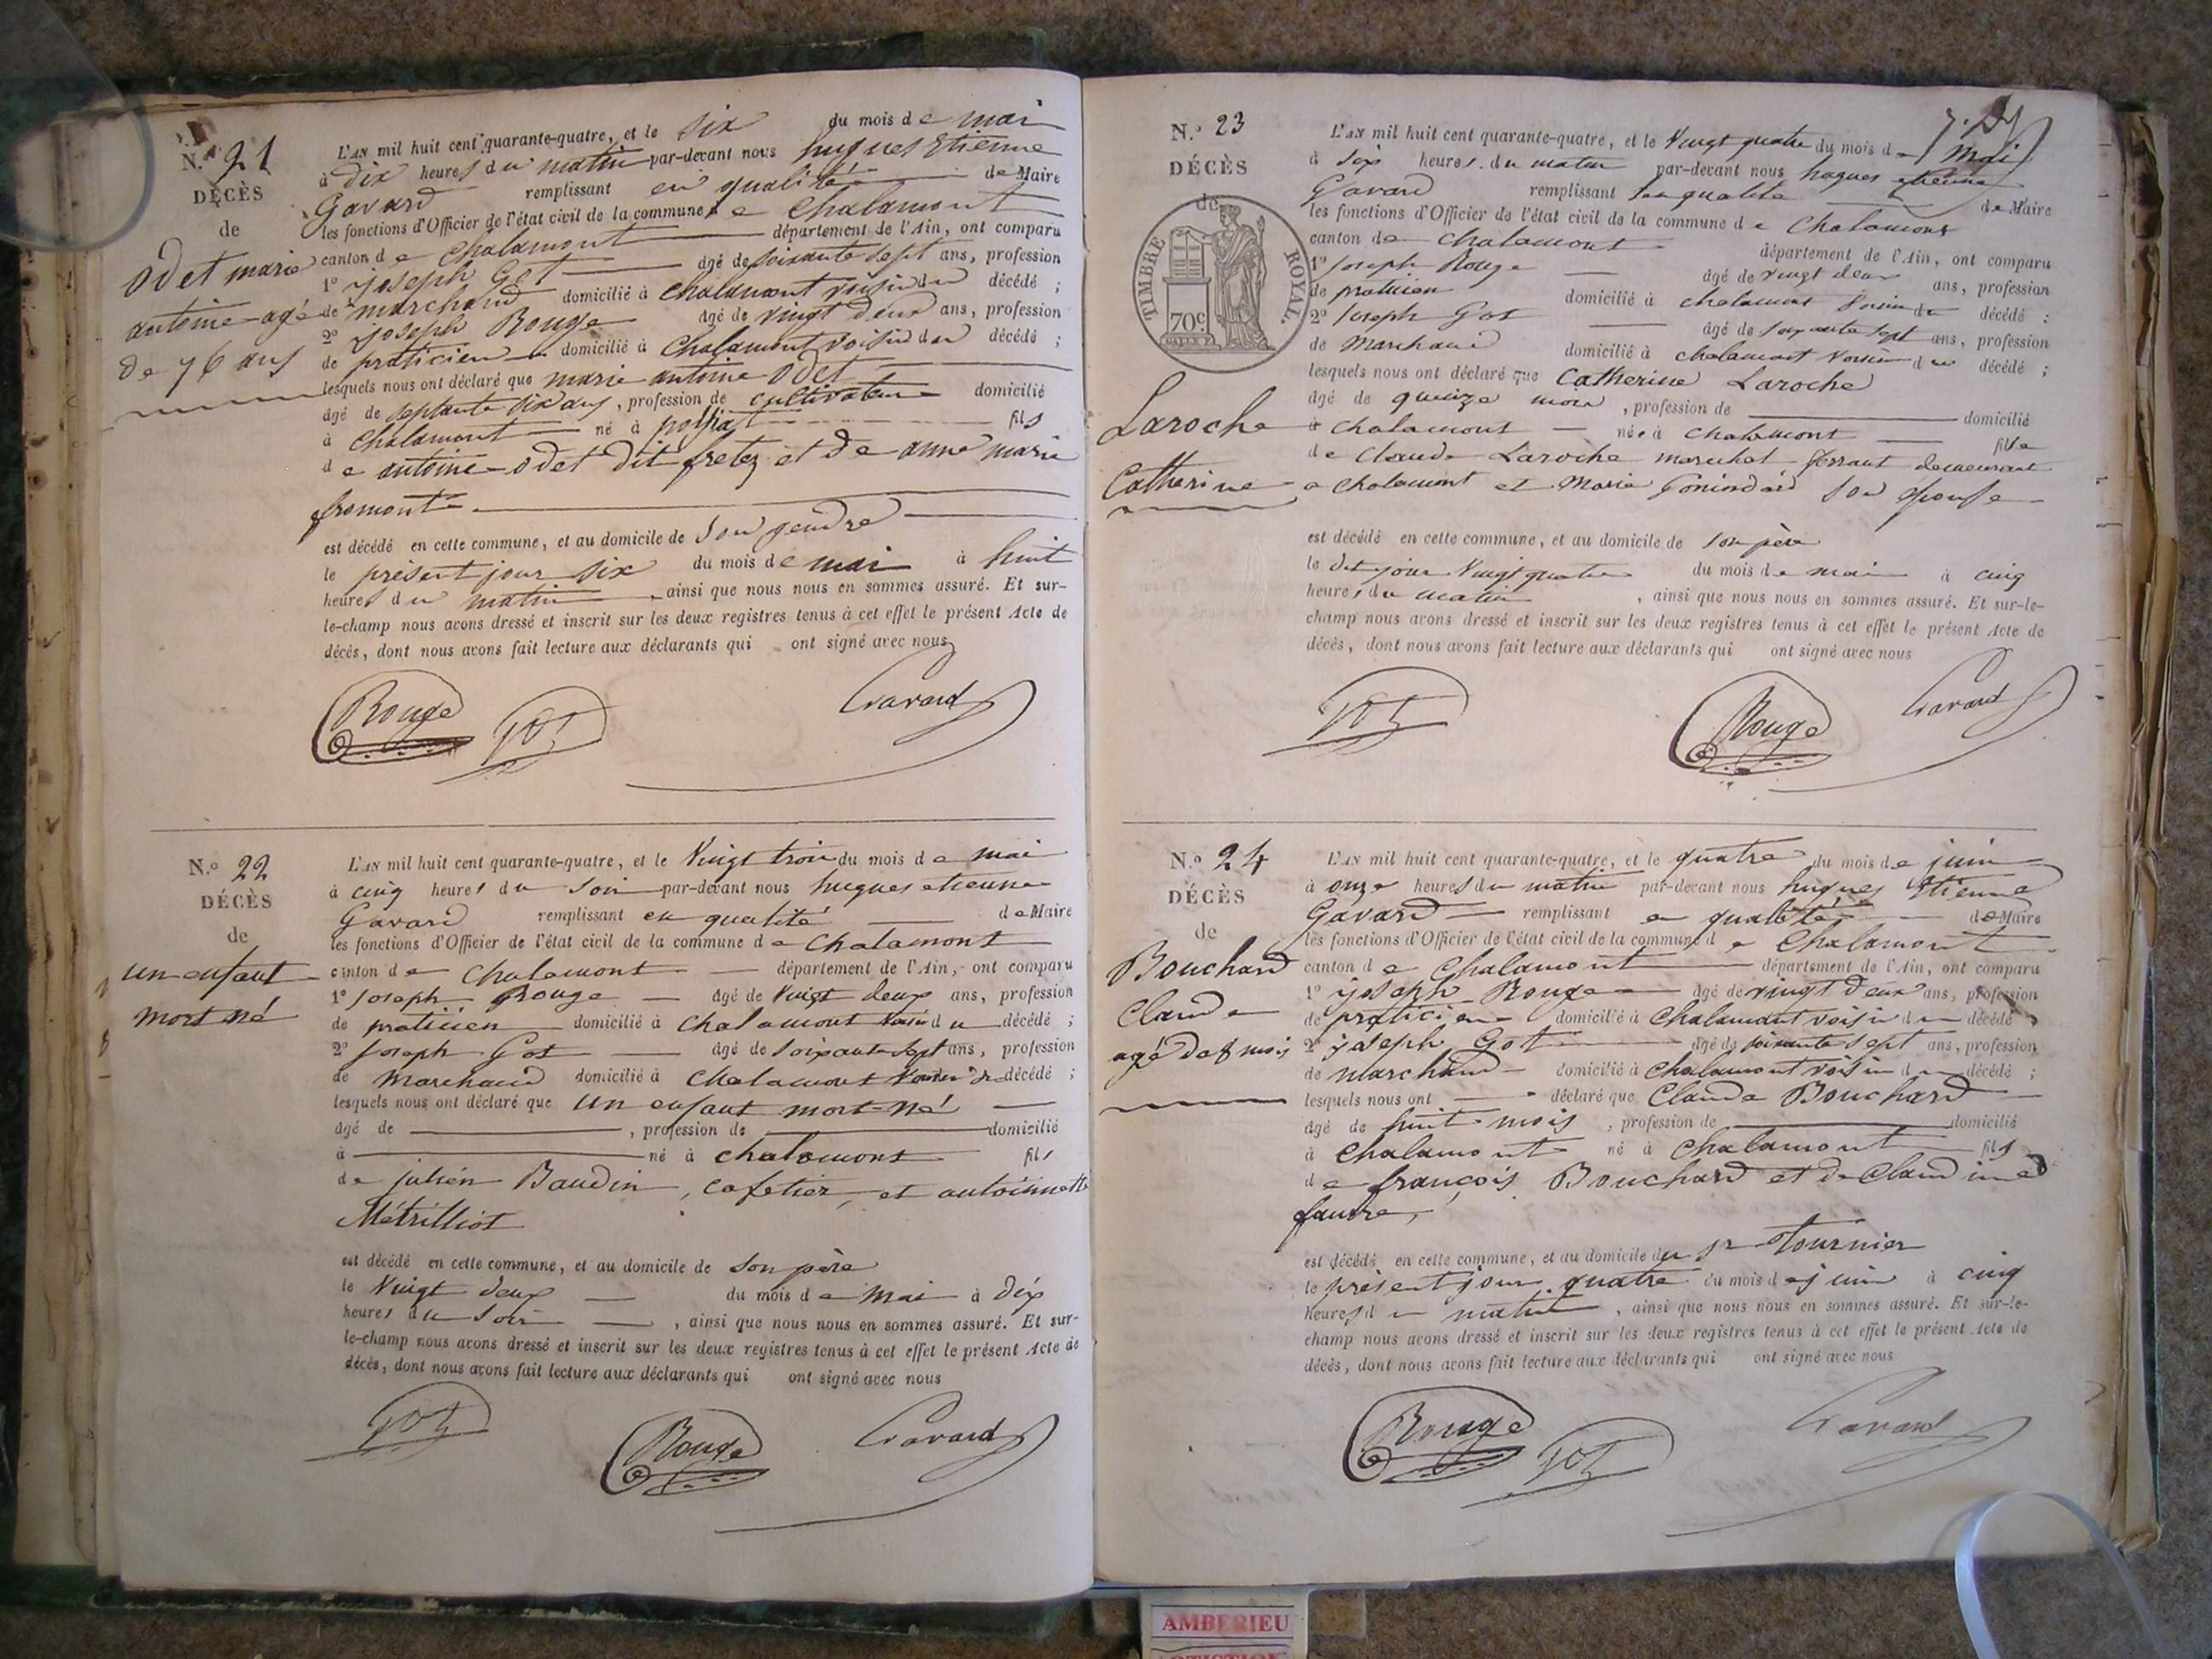 N.° 21
DÉCÈS
de
odet marie
antoine agé
de 76 ans
L'AN mil huit cent quarante-quatre, et le six du mois de mai
à dix heures du matin par-devant nous hugues Etienne
Gavard remplissant en qualité de Maire
les fonctions d'Officier de l'état civil de la commune de Chalamont
canton de Chalamont département de l'Ain, ont comparu
1° joseph Got âgé de soixante sept ans, profession
de marchand domicilié à Chalamont voisin du décédé ;
2° joseph Rouge âgé de vingt deux ans, profession
de praticien domicilié à Chalamont voisin du décédé ;
lesquels nous ont déclaré que marie antoine odet
âgé de septante six ans, profession de cultivateur domicilié
à Chalamont né à fils
de antoine odet dit fretez et de anne marie
fromont
est décédé en cette commune, et au domicile de son gendre
le présent jour six du mois de mai à huit
heures du matin, ainsi que nous nous en sommes assuré. Et sur-
le-champ nous avons dressé et inscrit sur les deux registres tenus à cet effet le présent Acte de
décès, dont nous avons fait lecture aux déclarants qui ont signé avec nous
Rouge Got Gavard
N.° 22
DÉCÈS
de
un enfant
mort né
L'AN mil huit cent quarante-quatre, et le Vingt trois du mois de mai
à cinq heures du soir par-devant nous hugues etienne
Gavard remplissant en qualité de Maire
les fonctions d'Officier de l'état civil de la commune de Chalamont
canton de Chalamont département de l'Ain, ont comparu
1° Joseph Rouge âgé de Vingt deux ans, profession
de praticien domicilié à Chalamont voisin du décédé ;
2° Joseph Got âgé de soixante sept ans, profession
de Marchand domicilié à Chalamont voisin du décédé ;
lesquels nous ont déclaré que un enfant mort-né
âgé de , profession de domicilié
à né à chalamont fils
de julien Baudin, cafetier, et antoinette
Métrilliot
est décédé en cette commune, et au domicile de son père
le Vingt deux du mois de Mai à dix
heures du soir , ainsi que nous nous en sommes assuré. Et sur-
le-champ nous avons dressé et inscrit sur les deux registres tenus à cet effet le présent Acte de
décès, dont nous avons fait lecture aux déclarants qui ont signé avec nous
Got Rouge Gavard
N.° 23
DÉCÈS
de
TIMBRE ROYAL.
70c.
Laroche
Catherine
L'AN mil huit cent quarante-quatre, et le Vingt quatre du mois de Mai
à six heures du matin par-devant nous hugues etienne
Gavard remplissant en qualité de Maire
les fonctions d'Officier de l'état civil de la commune de Chalamont
canton de Chalamont département de l'Ain, ont comparu
1° Joseph Rouge âgé de vingt deux ans, profession
de praticien domicilié à chalamont voisin du décédé :
2° Joseph Got âgé de soixante sept ans, profession
de Marchand domicilié à chalamont voisin du décédé ;
lesquels nous ont déclaré que Catherine Laroche
âgé de quinze mois, profession de domicilié
à chalamont née à chalamont fille
de Claude Laroche marechal ferrant demeurant
a chalamont et Marie son épouse
est décédé en cette commune, et au domicile de son père
le dit jour Vingt quatre du mois de mai à cinq
heures du matin , ainsi que nous nous en sommes assuré. Et sur-le-
champ nous avons dressé et inscrit sur les deux registres tenus à cet effet le présent Acte de
décès, dont nous avons fait lecture aux déclarants qui ont signé avec nous
Got Rouge Gavard
N.° 24
DÉCÈS
de
Bouchard
Claude
agé de 8 mois
L'AN mil huit cent quarante-quatre, et le quatre du mois de juin
à onze heures du matin par-devant nous hugues Etienne
Gavard remplissant en qualité de Maire
les fonctions d'Officier de l'état civil de la commune de Chalamont
canton de Chalamont département de l'Ain, ont comparu
1° joseph Rouge âgé de vingt deux ans, profession
de praticien domicilié à Chalamont voisin du décédé ;
2° joseph Got âgé de soixante sept ans, profession
de marchand domicilié à Chalamont voisin du décédé ;
lesquels nous ont déclaré que Claude Bouchard
âgé de huit mois , profession de domicilié
à Chalamont né à Chalamont fils
de françois Bouchard et de Claudine
faure,
est décédé en cette commune, et au domicile du sr Tournier
le présent jour quatre du mois de juin à cinq
heures du matin , ainsi que nous nous en sommes assuré. Et sur-le-
champ nous avons dressé et inscrit sur les deux registres tenus à cet effet le présent Acte de
décès, dont nous avons fait lecture aux déclarants qui ont signé avec nous
Rouge Got Gavard
AMBERIEU